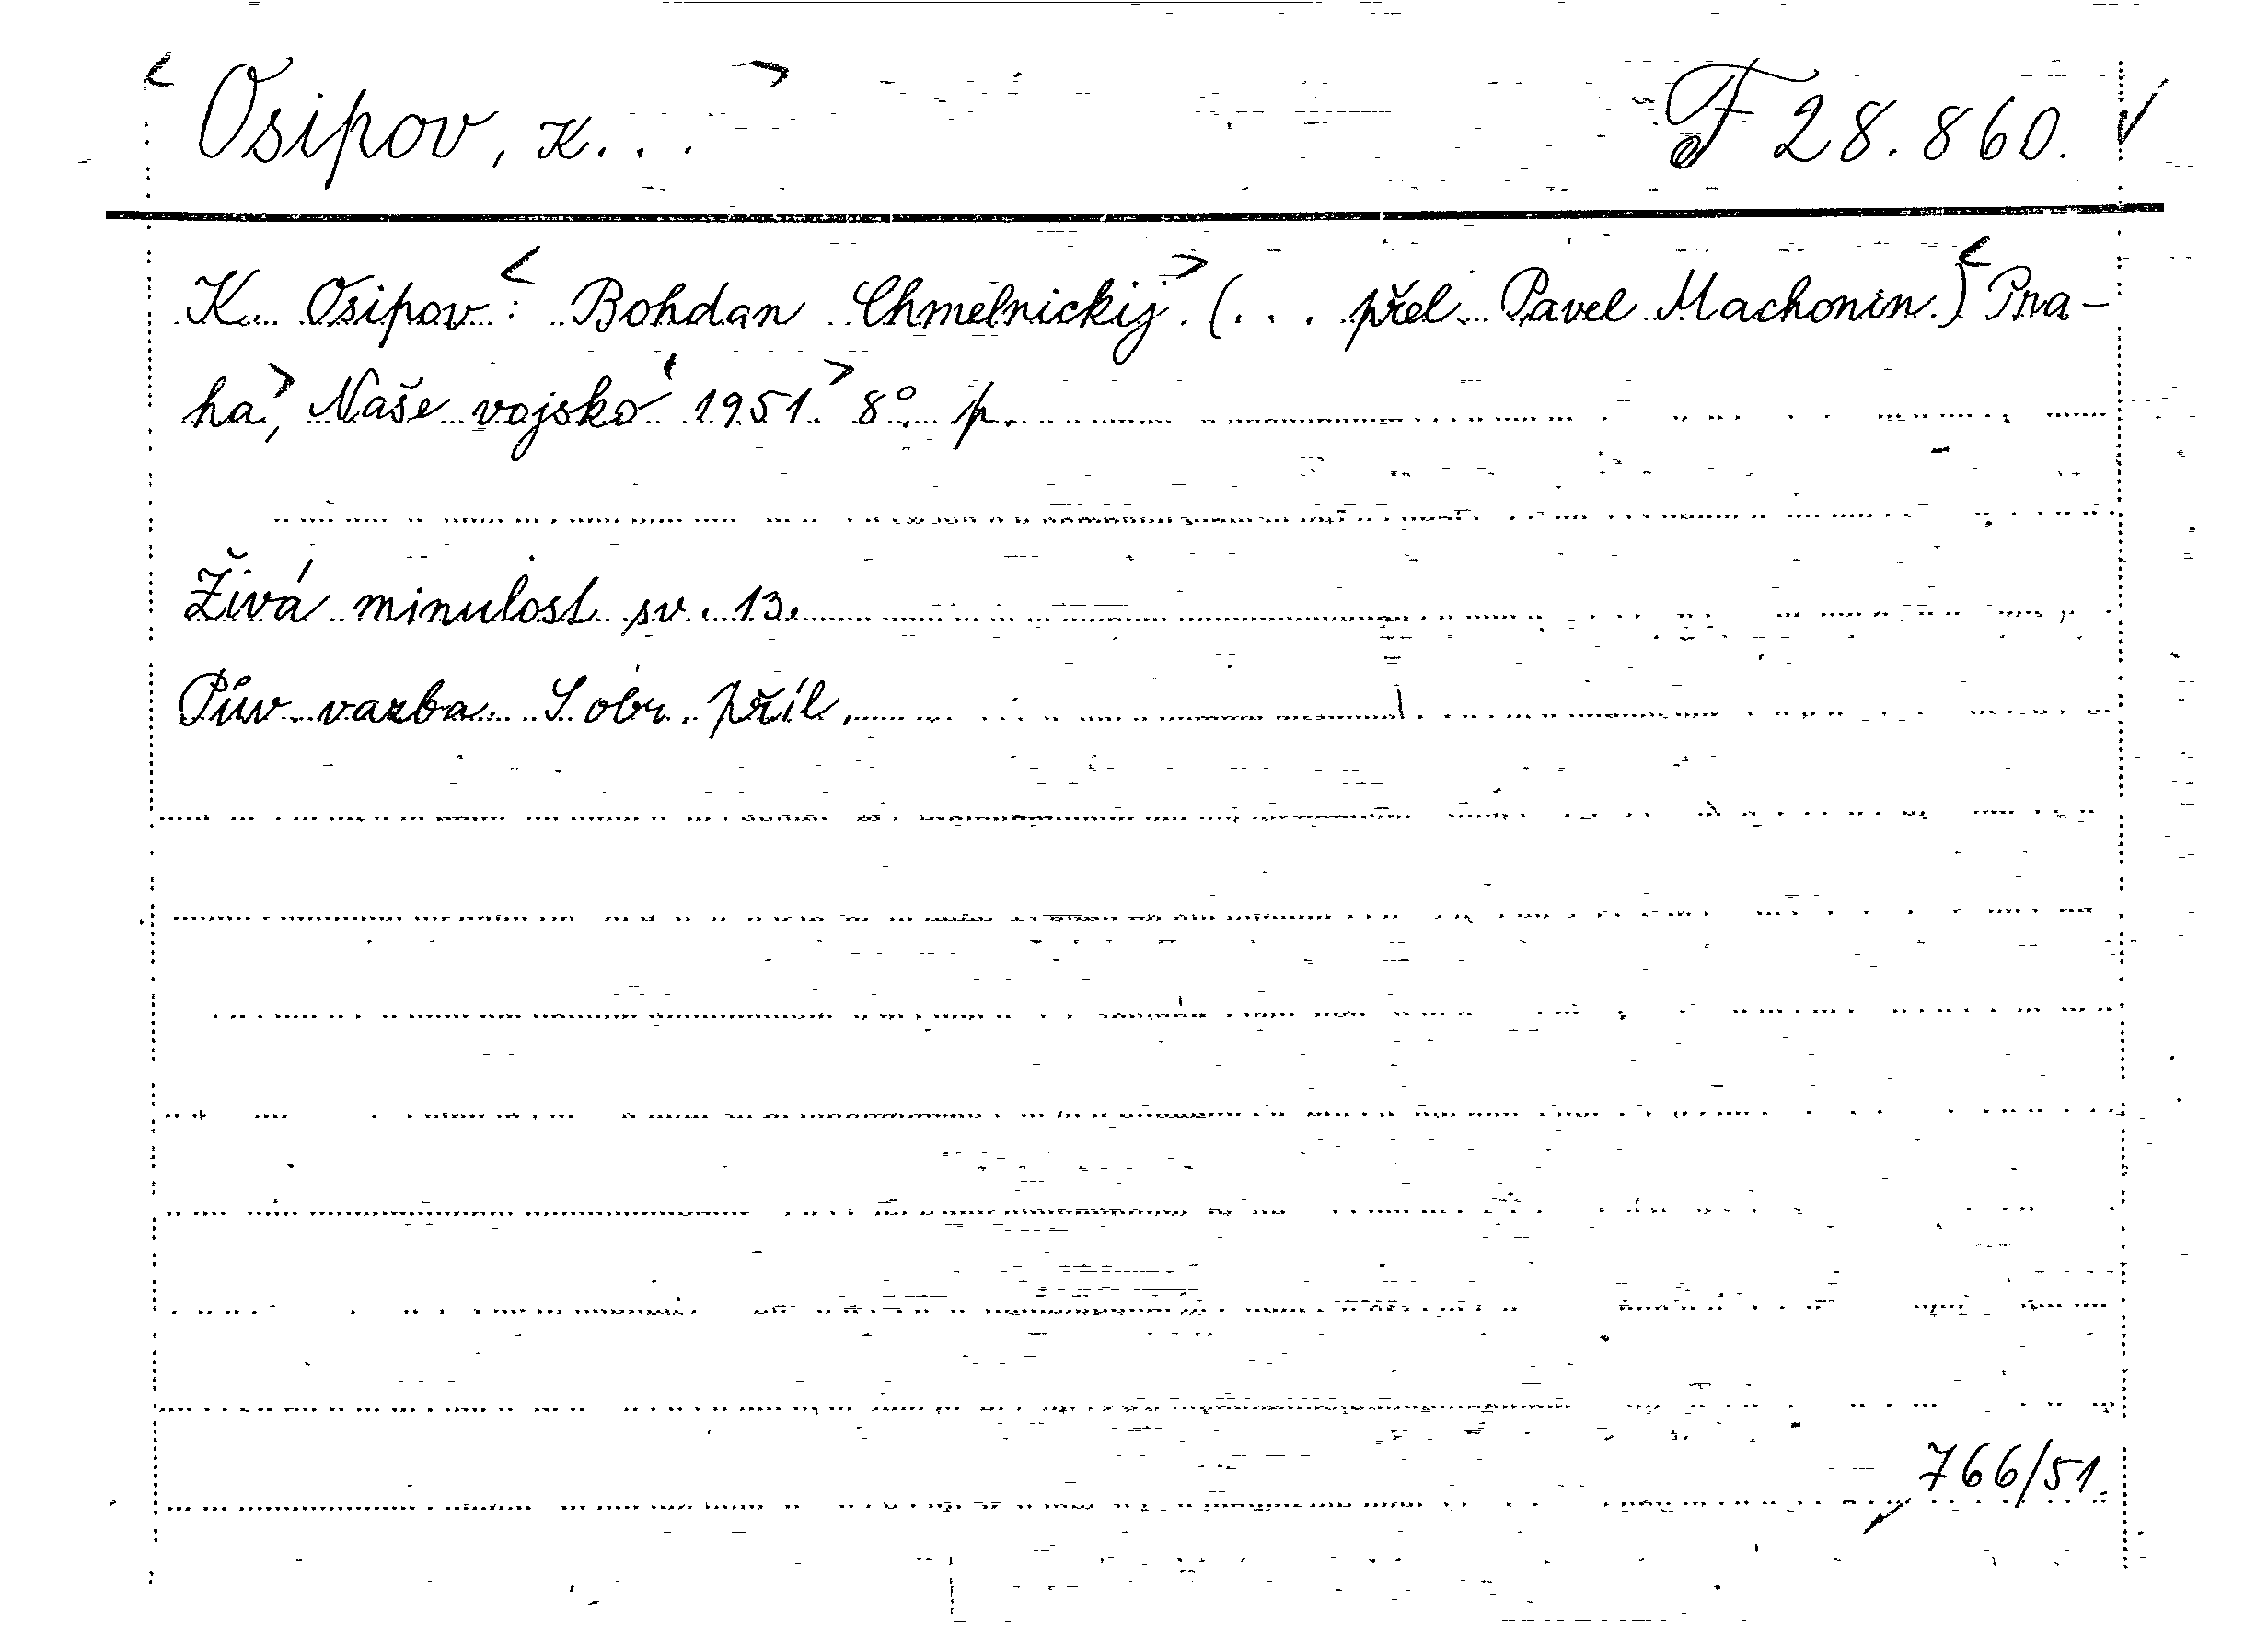 Osipov, K... F 28.860.
K. Osipov: Bohdan Chmělnickij. (... přel. Pavel Machonin.) Pra-
ha, Naše vojsko 1951. 8°. p.
Živá minulost sv. 13.
Pův. vazba. S obr. příl.
766/51.